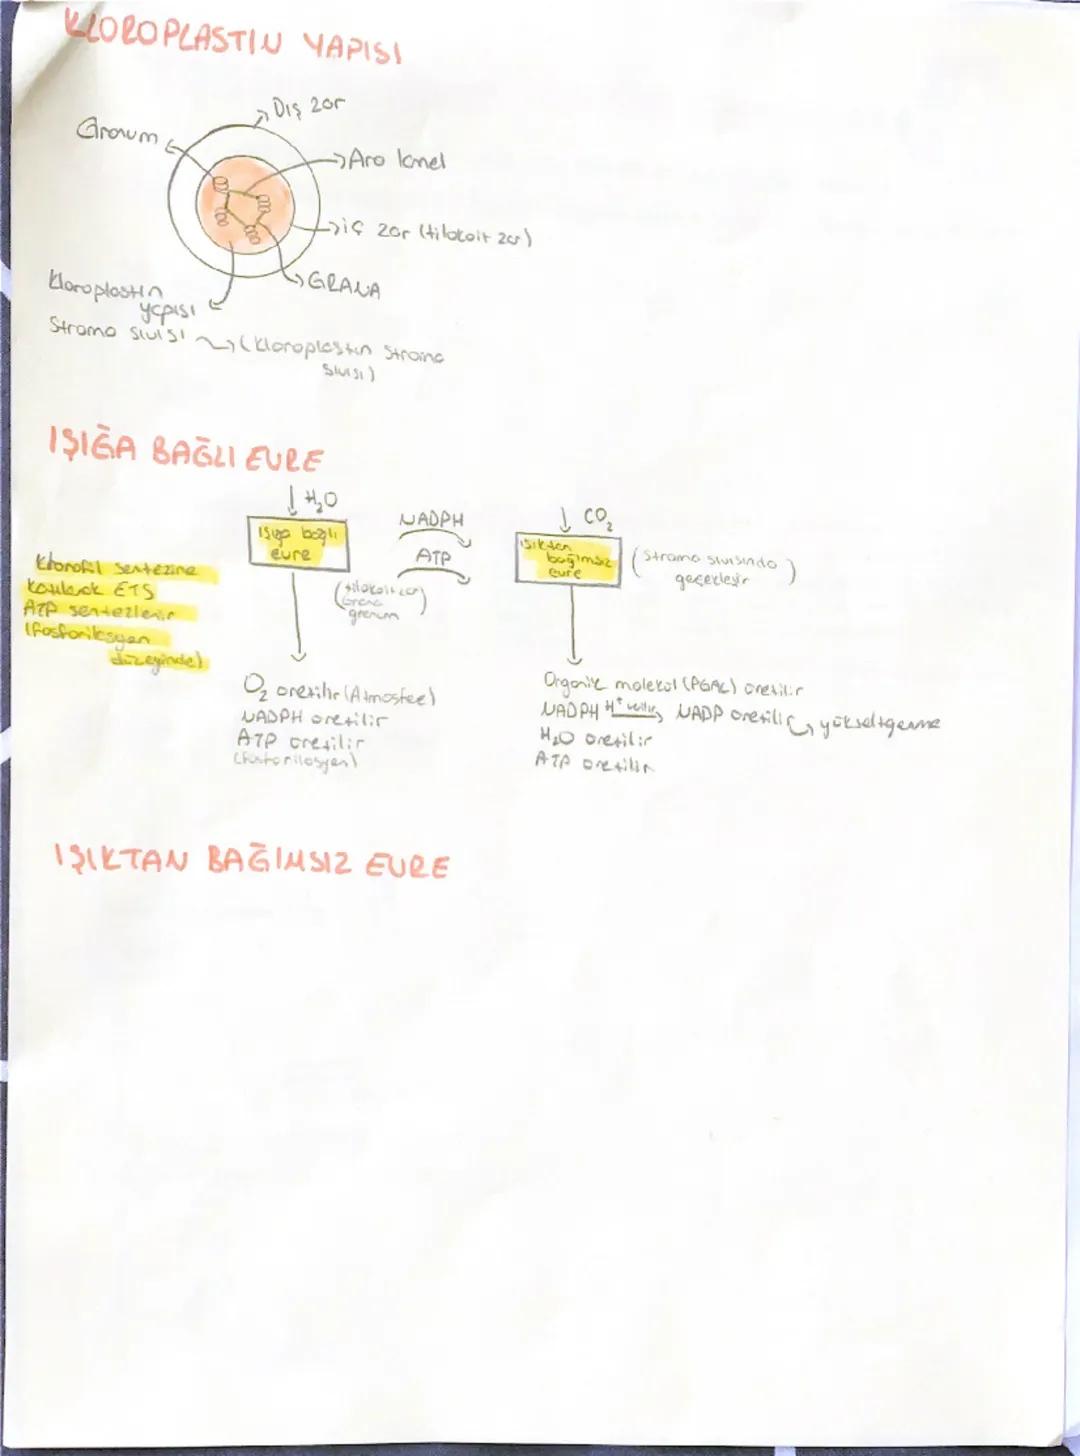 KLOROPLASTIN YAPISI
Dış zar
Granum
Ara lamel
iç zar (tilakoit zar)
GRANA
Kloroplastın
yapısı
Stroma sıvısı
(Kloroplastın Stroma
sıvısı)
IŞIĞA BAĞLI EVRE
H₂O
NADPH
CO₂
ışığa bağlı
evre
ATP
ışıktan
bağımsız
evre
(Stroma sıvısında
geçekleşir)
(tilakoit zar)
Grana
granum
Klorofil sentezine
katılarak ETS
ATP sentezlenir
(fosforilasyon
düzeyinde)
O₂ üretilir (Atmosfee)
NADPH üretilir
ATP üretilir
(fosforilasyon)
Organik molekül (PGAL) üretilir
NADPH H⁺ verilir NADP üretilir yükseltgenme
H₂O üretilir
ATP üretilir
IŞIKTAN BAĞIMSIZ EVRE